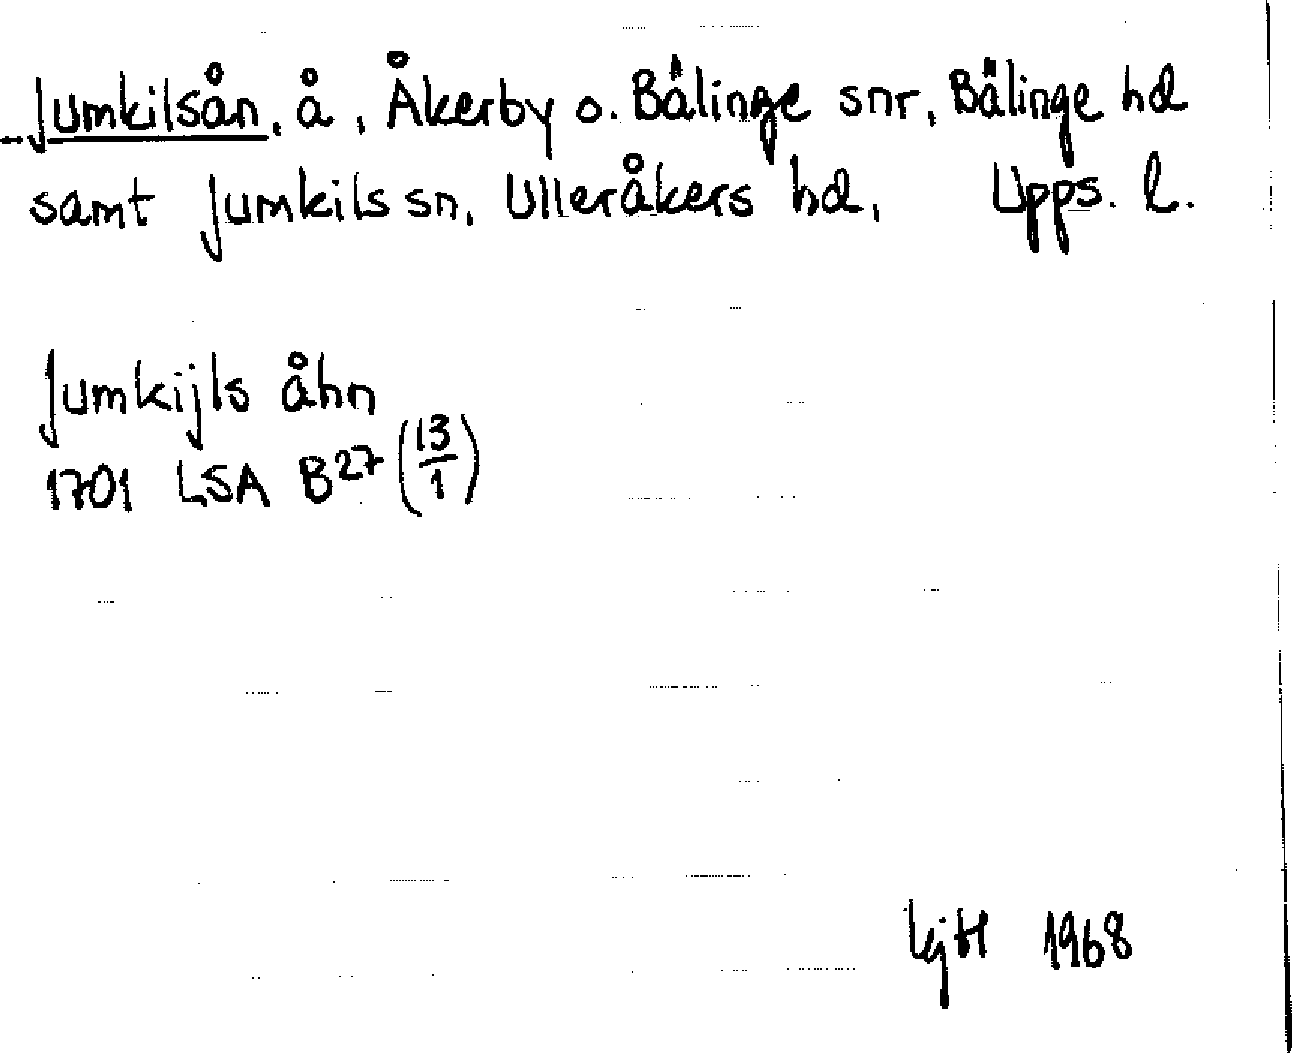 Jumkilsån, å, Åkerby o. Bälinge snr, Bälinge hd
samt Jumkils sn, Ulleråkers hd, Upps. l.
Jumkijls åhn
1701 LSA B27 (13/1)
1968